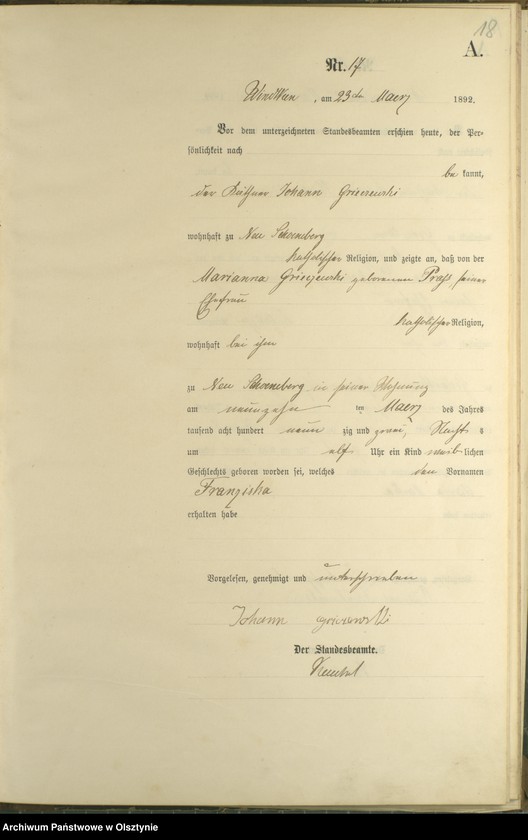 18
A.
Nr. 17
am 23ten Maerz 1892.
Vor dem unterzeichneten Standesbeamten erschien heute, der Per-
sönlichkeit nach
be kannt,
der Käthner Johann
wohnhaft zu Neu Schoeneberg
katholischer Religion, und zeigte an, daß von der
Marianna geborenen seiner
Ehefrau
katholischer Religion,
wohnhaft bei ihm
zu Neu Schoeneberg in seiner Wohnung
am neunzehn ten Maerz des Jahres
tausend acht hundert neun zig und zwei, Nachts
um elf Uhr ein Kind weib lichen
Geschlechts geboren worden sei, welches den Vornamen
Franziska
erhalten habe
Vorgelesen, genehmigt und unterschrieben
Johann
Der Standesbeamte.
Archiwum Państwowe w Olsztynie